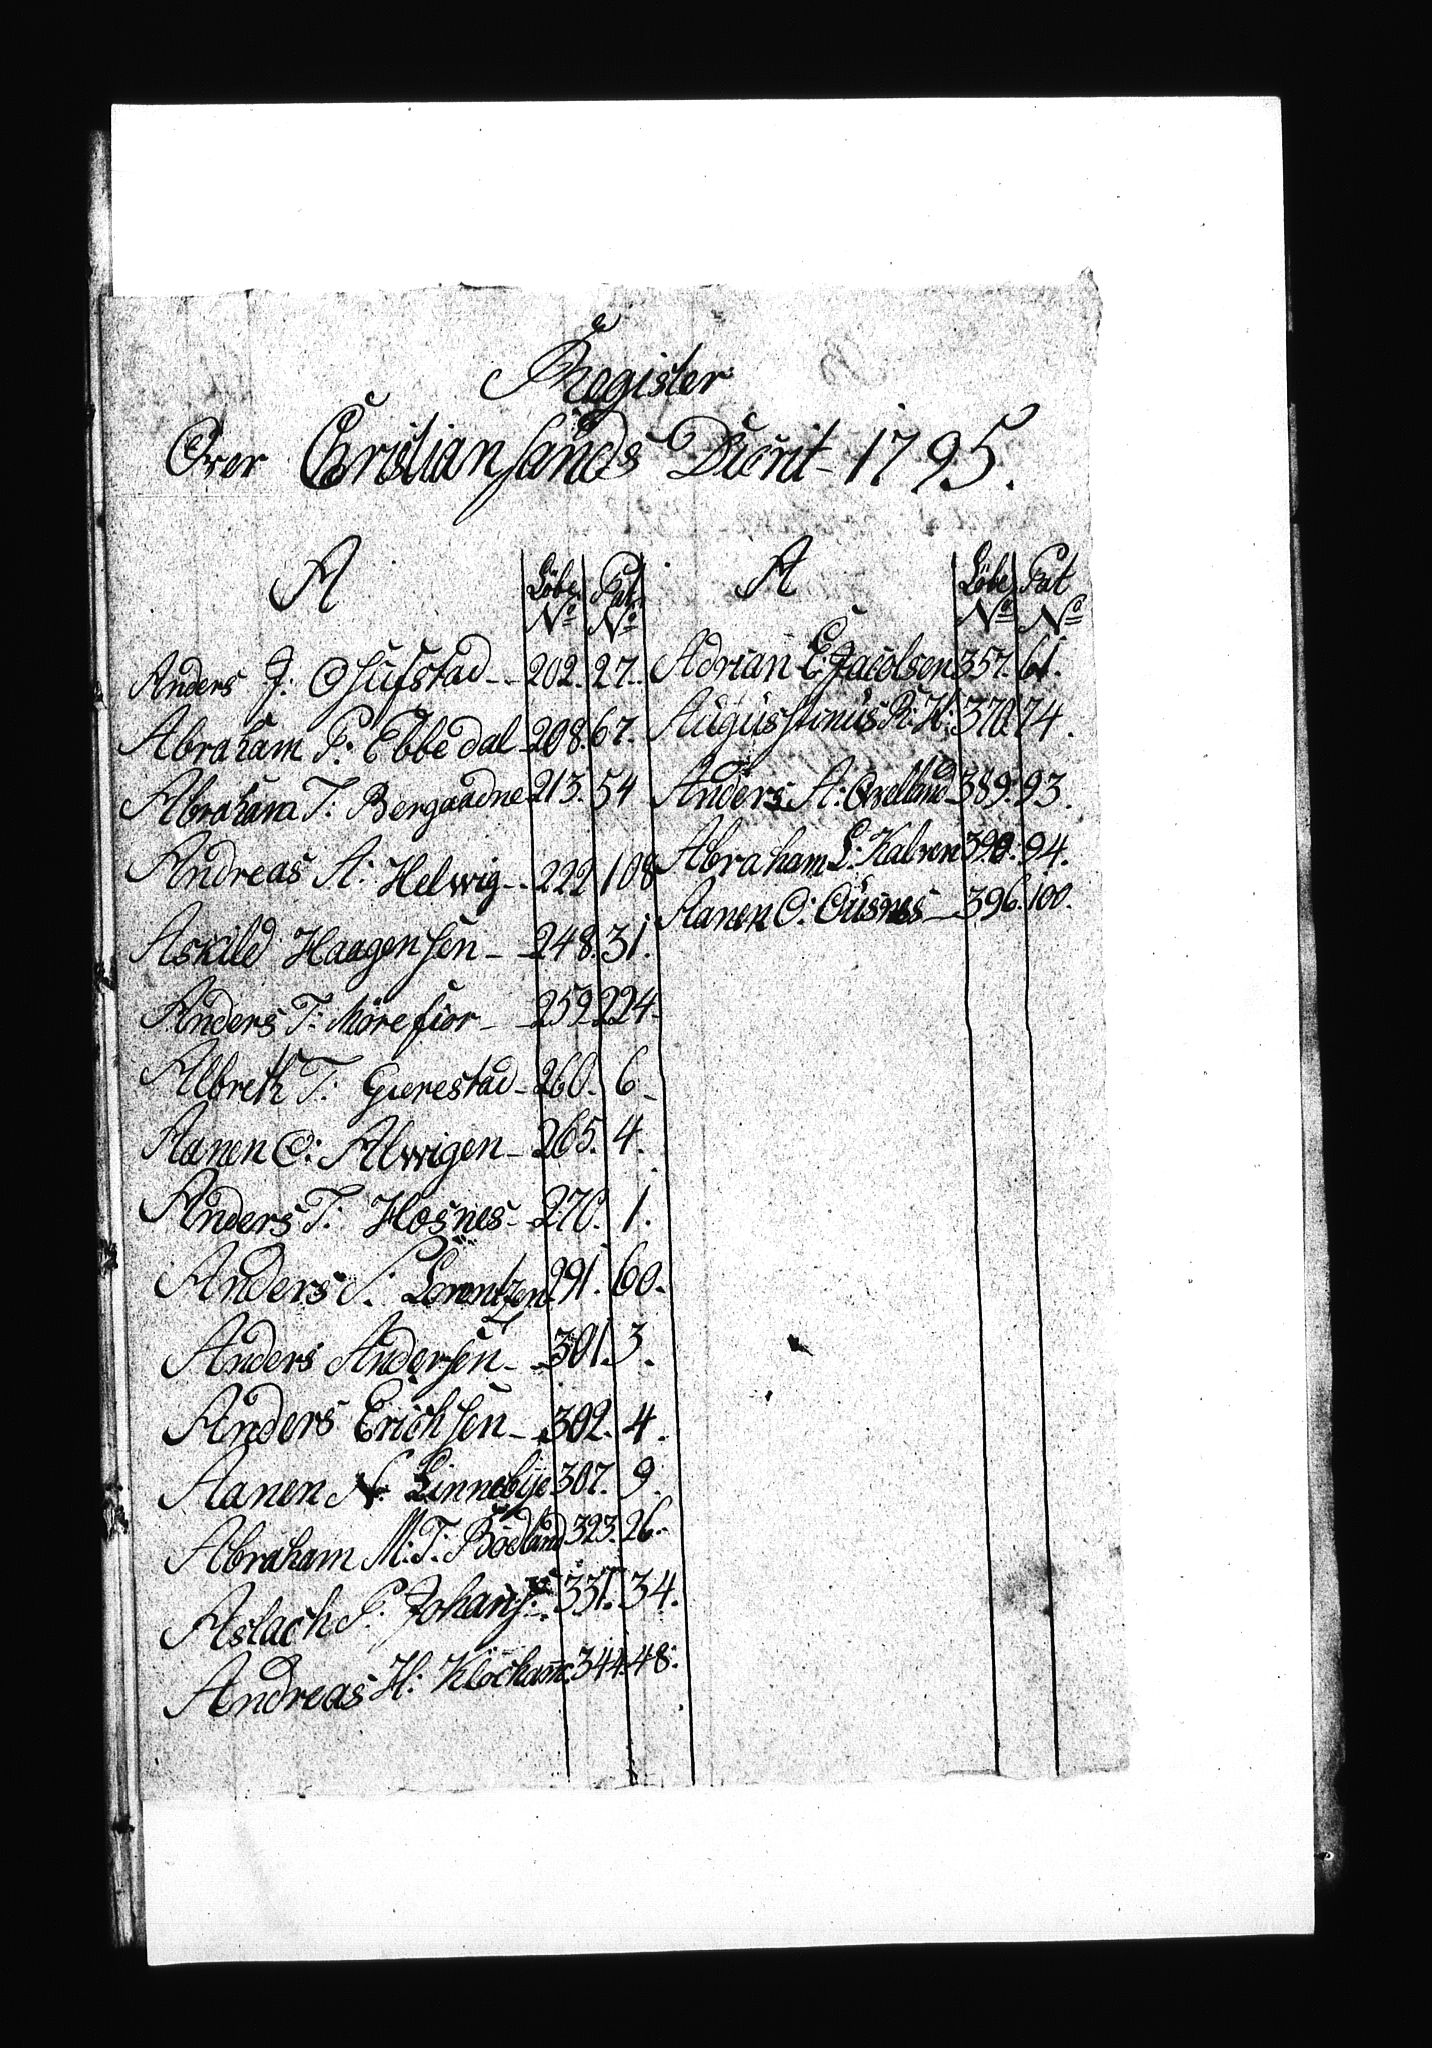 Register
Over Christiansands Distrit 1795.
A
Löbe Pat
No No
Anders J: Ghufstad - - 202. 27.
Abraham P: Ebbedal - 208. 67.
Abraham T: Bergaadne 213. 54
Andreas A: Helwig - - 222 108
Askild Haagensen - - 248. 31.
Anders T: Mörefior - - 259 224
Albreth T: Gierestad - 260. 6
Aanen O: Alwigen - 265. 4.
Anders T: Hosnes - 270. 1.
Anders S: Lorentzen 291. 60.
Anders Andersen - - 301. 3.
Anders Erichsen - - 302. 4.
Aanen N: Linnebye 307. 9.
Abraham M: T: Bödland 323. 26.
Aslach P: Johans: 331. 34.
Andreas H: Klochams: 344. 48.
A
Löbe Pat
No No
Adrian E: Jacobsen 357. 61.
Augustinus R: H: 370. 74.
Anders A: Qvelland 389. 93.
Abraham L: Kalven 390. 94.
Aanen O: Ousnes - 396. 100.